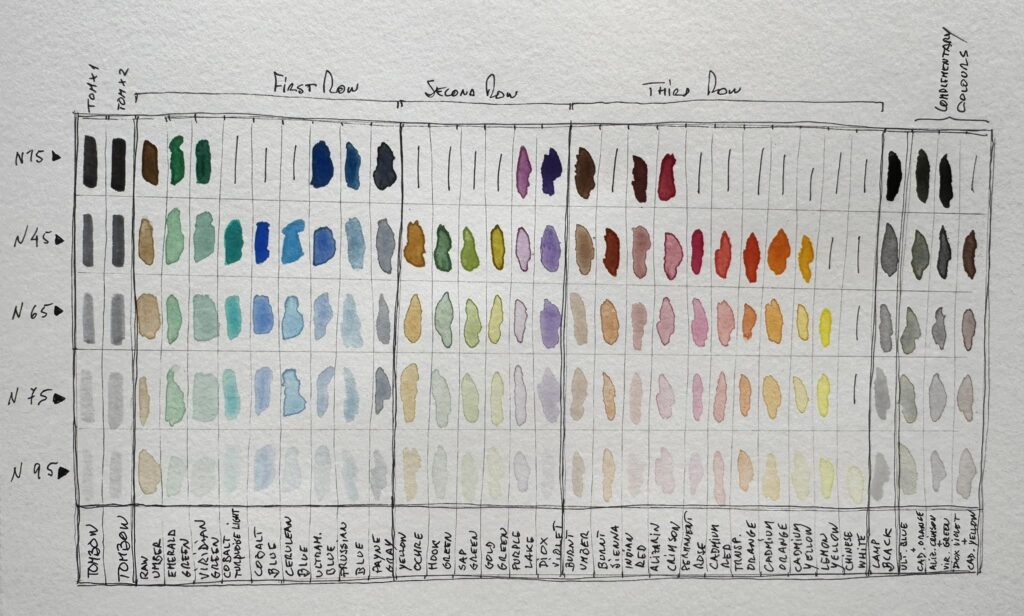 TOM×1
TOM×2
FIRST ROW
SECOND ROW
THIRD ROW
COMPLEMENTARY
COLOURS
N15
N45
N65
N75
N95
TOMBOW
TOMBOW
RAW
UMBER
EMERALD
GREEN
VIRIDIAN
GREEN
COBALT
TURQUOISE LIGHT
COBALT
BLUE
CERULEAN
BLUE
ULTRAM.
BLUE
PRUSSIAN
BLUE
PAYNE
GRAY
YELLOW
OCHRE
HOOK
GREEN
SAP
GREEN
GOLD
GREEN
PURPLE
LAKE
DIOX
VIOLET
BURNT
UMBER
BURNT
SIENNA
INDIAN
RED
ALIZARIN
CRIMSON
PERMANENT
ROSE
CADMIUM
RED
TRANSP.
ORANGE
CADMIUM
ORANGE
CADMIUM
YELLOW
LEMON
YELLOW
CHINESE
WHITE
LAMP
BLACK
ULT. BLUE
+
CAD. ORANGE
ALIZ. CRIMSON
+
VIR. GREEN
DIOX VIOLET
+
CAD. YELLOW